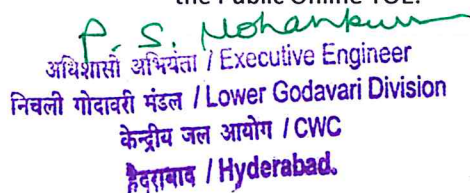 the Public Online TOE.
P. S. Mohankumar
अधिशासी अभियंता / Executive Engineer
निचली गोदावरी मंडल / Lower Godavari Division
केन्द्रीय जल आयोग / CWC
हैदराबाद / Hyderabad.